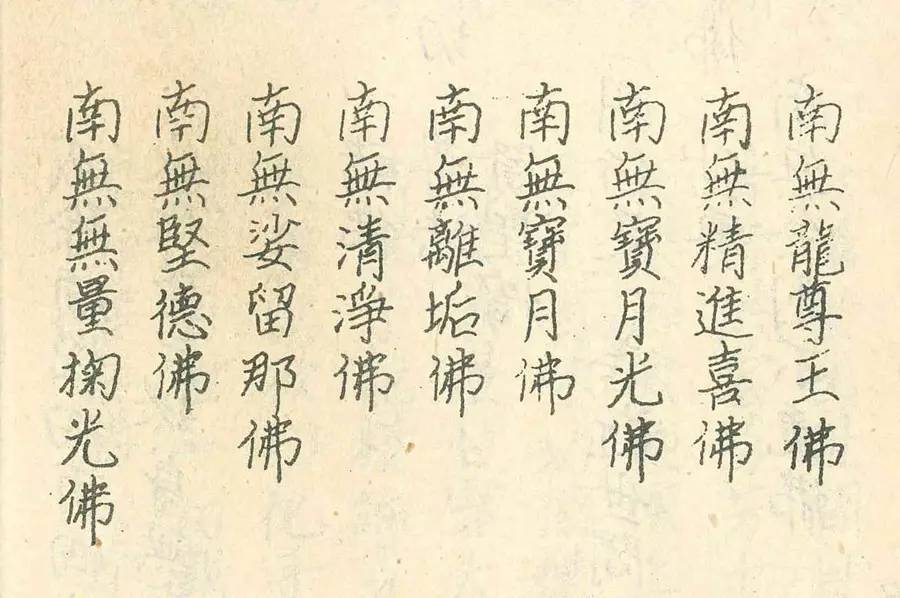 南無龍尊王佛
南無精進喜佛
南無寶月光佛
南無寶月佛
南無離垢佛
南無清淨佛
南無娑留那佛
南無堅德佛
南無無量掬光佛